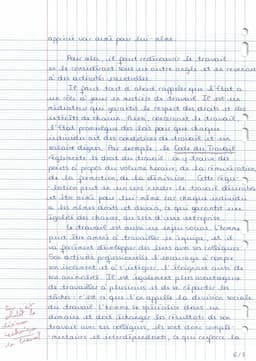 apprécié voir aimé pour lui-même.
Pour cela, il faut redécouvrir le travail
en le considérant sous un autre angle et se
à des activités
Il faut tout d'abord rappeler que l'État a
un rôle à jouer en matière de travail. Il est un
médiateur qui garantit le respect des droits et des
intérêts de chacun. Ainsi, concernant le travail,
l'État promulgue des lois pour que chaque
individu ait des conditions de travail et un
salaire dignes. Par exemple, le Code du Travail
réglemente le droit du travail : on y trouve des
points à propos du volume horaire, de la rémunération,
de la formation, de la démission. Cette régu-
lation peut en un sens rendre le travail désirable
et être aimé pour lui-même car chaque individu
a les mêmes droits et devoirs, ce qui garantit une
égalité des chances, au sein d'une entreprise.
Le travail est aussi un enjeu social. L'homme
peut être amené à travailler en équipe, et il
va forcément développer des liens avec ses collègues.
Son activité professionnelle l'encourage à rompre
son isolement et à s'intégrer, l'éloignant ainsi de
ses
Il est également plus avantageux
de travailler à plusieurs et de se répartir les
tâches : c'est ce que l'on appelle la division sociale
du travail. L'homme se spécialise dans un
domaine et doit échanger les résultats de son
travail avec ses collègues, ils sont donc complé-
mentaires et interdépendants, ce qui renforce la
du travail
6/8